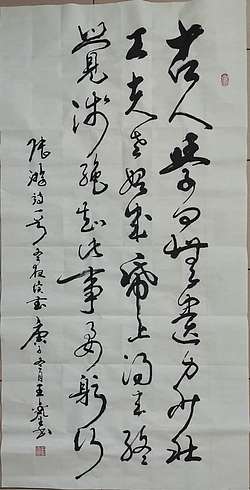 古人學问無遺力少壮
工夫老始成纸上得来终
覺浅绝知此事要躬行
陆游诗一首冬夜读书庚子月王书